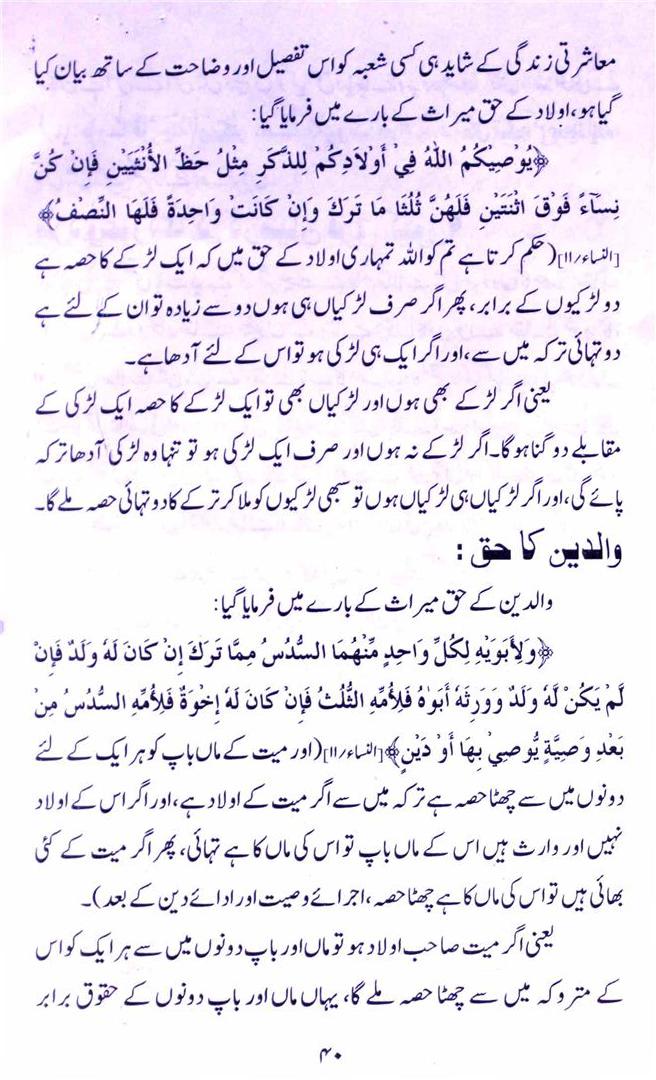 معاشرتی زندگی کے شاید ہی کسی شعبہ کو اس تفصیل اور وضاحت کے ساتھ بیان کیا
گیا ہو، اولاد کے حق میراث کے بارے میں فرمایا گیا:
﴿يُوْصِيْكُمُ اللهُ فِيْ أَوْلَادِكُمْ لِلذَّكَرِ مِثْلُ حَظِّ الأُنْثَيَيْنِ فَإِنْ كُنَّ
نِسَآءً فَوْقَ اثْنَتَيْنِ فَلَهُنَّ ثُلُثَا مَا تَرَكَ وَإِنْ كَانَتْ وَاحِدَةً فَلَهَا النِّصْفُ﴾
[النساء/۱۱] (حکم کرتا ہے تم کو اللہ تمہاری اولاد کے حق میں کہ ایک لڑکے کا حصہ ہے
دو لڑکیوں کے برابر، پھر اگر صرف لڑکیاں ہی ہوں دو سے زیادہ تو ان کے لئے ہے
دو تہائی ترکہ میں سے، اور اگر ایک ہی لڑکی ہو تو اس کے لئے آدھا ہے۔
یعنی اگر لڑکے بھی ہوں اور لڑکیاں بھی تو ایک لڑکے کا حصہ ایک لڑکی کے
مقابلے دو گنا ہوگا۔ اگر لڑکے نہ ہوں اور صرف ایک لڑکی ہو تو تنہا وہ لڑکی آدھا ترکہ
پائے گی، اور اگر لڑکیاں ہی لڑکیاں ہوں تو سبھی لڑکیوں کو ملا کر ترکے کا دو تہائی حصہ ملے گا۔
والدین کا حق :
والدین کے حق میراث کے بارے میں فرمایا گیا:
﴿وَلِأَبَوَيْهِ لِكُلِّ وَاحِدٍ مِّنْهُمَا السُّدُسُ مِمَّا تَرَكَ إِنْ كَانَ لَهُ وَلَدٌ فَإِنْ
لَّمْ يَكُنْ لَّهُ وَلَدٌ وَوَرِثَهُ أَبَوَاهُ فَلِأُمِّهِ الثُّلُثُ فَإِنْ كَانَ لَهُ إِخْوَةٌ فَلِأُمِّهِ السُّدُسُ مِنْ
بَعْدِ وَصِيَّةٍ يُّوصِيْ بِهَا أَوْ دَيْنٍ﴾ [النساء/۱۱] (اور میت کے ماں باپ کو ہر ایک کے لئے
دونوں میں سے چھٹا حصہ ہے ترکہ میں سے اگر میت کے اولاد ہے، اور اگر اس کے اولاد
نہیں اور وارث ہیں اس کے ماں باپ تو اس کی ماں کا ہے تہائی، پھر اگر میت کے کئی
بھائی ہیں تو اس کی ماں کا ہے چھٹا حصہ، اجرائے وصیت اور ادائے دین کے بعد)۔
یعنی اگر میت صاحب اولاد ہو تو ماں اور باپ دونوں میں سے ہر ایک کو اس
کے متروکہ میں سے چھٹا حصہ ملے گا، یہاں ماں اور باپ دونوں کے حقوق برابر
۴۰